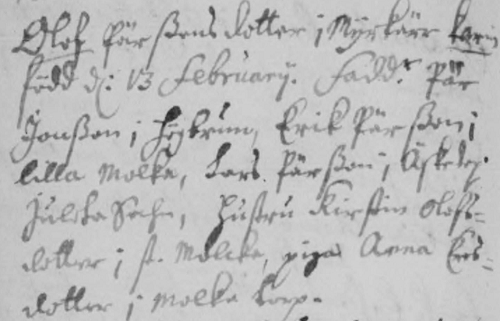 Olof Pär ßons dotter i Myrkärr Karin
född d: 13 February. Fadd:r Pär
Jonßon i Högbrun, Erik Pär ßon i
lilla Molka, Lars Pär ßon i
Sochn, Hustru Kirstin Olofs=
dotter i st. Molcka, piga Anna Ers=
dotter i Molka torp.